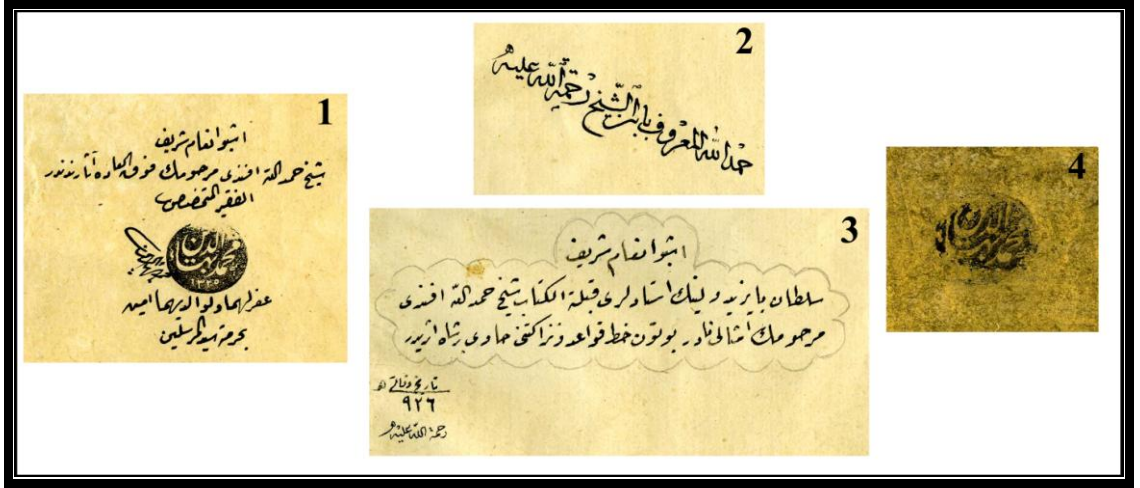 1
اشبو انعام شريف
شيخ حمد الله افندى مرحومك فوق العاده آثارندندر
الفقير المتخصص
محمد بهاء الدين
١٣٢٥
غفر لهما ولوالديهما امين
بحرمة سيد المرسلين
2
حمد الله المعروف بابن الشيخ رحمة الله عليه
3
اشبو انعام شريف
سلطان بايزيد ولينك استادلرى قبلة الكتاب شيخ حمد الله افندى
مرحومك امثالى نادر بوتون خط قواعد ونزاكتنى حاوى بر شاه اثريدر
تاريخ وفاتى
٩٢٦
رحمة الله عليه
4
محمد بهاء الدين